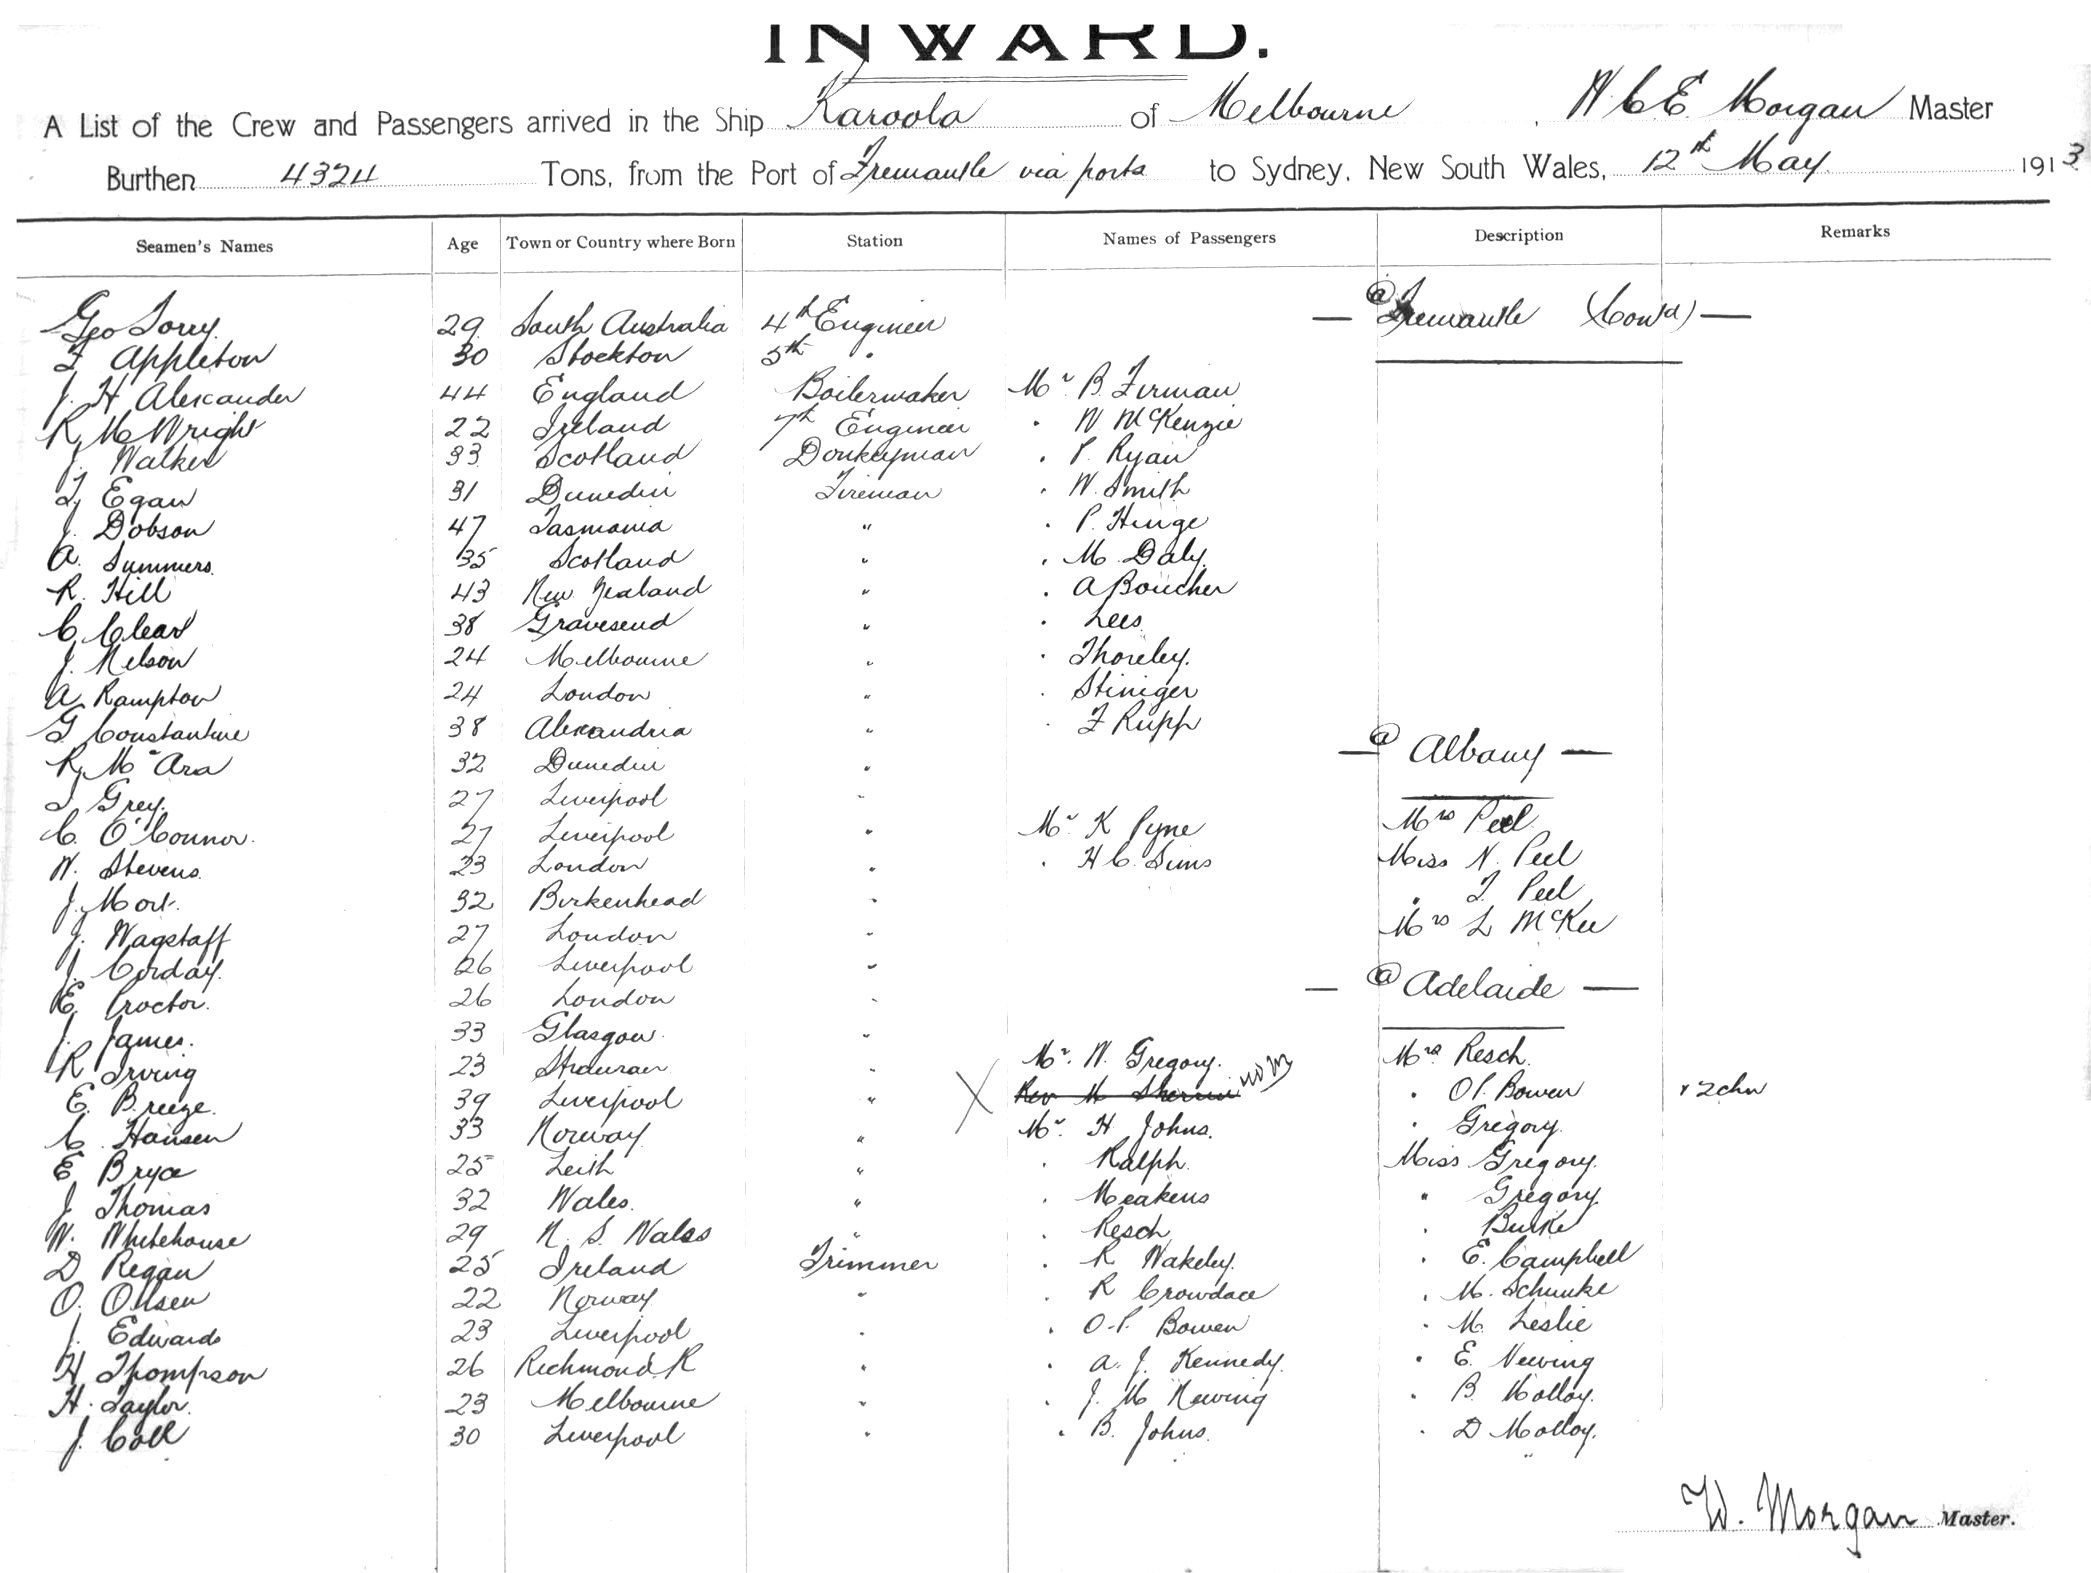 INWARD.
A List of the Crew and Passengers arrived in the Ship Karoola of Melbourne, W C E Morgan Master
Burthen 4324 Tons, from the Port of Fremantle via ports to Sydney, New South Wales, 12th May 1913
Seamen's Names Age Town or Country where Born Station Names of Passengers Description Remarks
Geo Sorry 29 South Australia 4th Engineer — @ Fremantle (Contd) —
F Appleton 30 Stockton 5th "
J. H Alexander 44 England Boilermaker Mr B. Firman
R McWright 22 Ireland 7th Engineer " W McKenzie
J. Walker 33 Scotland Donkeyman " P. Ryan
T. Egan 31 Dunedin Fireman " W. Smith
J. Dobson 47 Tasmania " " P. Hinge
A. Summers 35 Scotland " " M Daly
R. Hill 43 New Zealand " " A Boucher
C. Clear 38 Gravesend " " Lees
J. Nelson 24 Melbourne " " Thoreley
A. Rampton 24 London " " Stiniger
G Constantine 38 Alexandria " " F Rupp
R McAra 32 Dunedin " — @ Albany —
Grey 27 Liverpool "
C. O'Connor 27 Liverpool " Mr K Pyne Mrs Peel
W. Stevens 23 London " " H C. Sims Miss N. Peel
J. Mort 32 Birkenhead " " Peel
J. Wagstaff 27 London " Mrs L McKee
J. Corday 26 Liverpool "
E. Proctor 26 London " — @ Adelaide —
J. James 33 Glasgow "
R Irving 23 " Mr. W. Gregory. Mrs Resch
E. Breeze 39 Liverpool " X Rev H Sherrin " O P. Bowen
C. Hansen 33 Norway " Mr. H Johns. " Gregory.
E Bryce 25 Leith " " Ralph Miss Gregory.
J Thomas 32 Wales. " " Meakens " Gregory
W. Whitehouse 29 N. S. Wales " " Resch " Burke
D Regan 25 Ireland Trimmer " R Wakeley. " E. Campbell
O. Olsen 22 Norway " " R Crowdace " M. Schunke
J. Edwards 23 Liverpool " " O. P. Bowen " M. Leslie
H Thompson 26 Richmond R " " A. J. Kennedy. " E. Newing
H. Taylor 23 Melbourne " " J. M Newing " B. Molloy.
J. Coll 30 Liverpool " " B. Johns. " D Molloy.
W. Morgan Master.